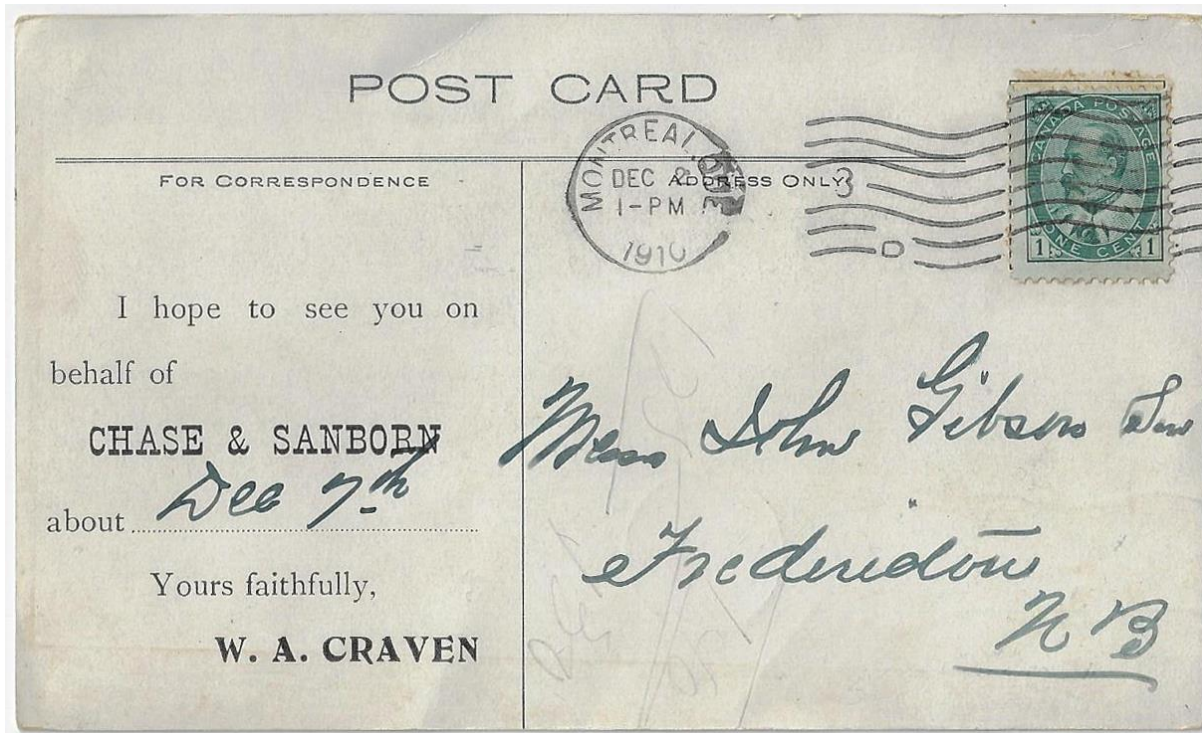 POST CARD
FOR CORRESPONDENCE
ADDRESS ONLY
MONTREAL, QUE.
DEC 2
1-PM
1910
3
D
CANADA POSTAGE
1 ONE CENT 1
I hope to see you on
behalf of
CHASE & SANBORN
about Dec 7th
Yours faithfully,
W. A. CRAVEN
Mess John Gibson Son
Fredericton
N B